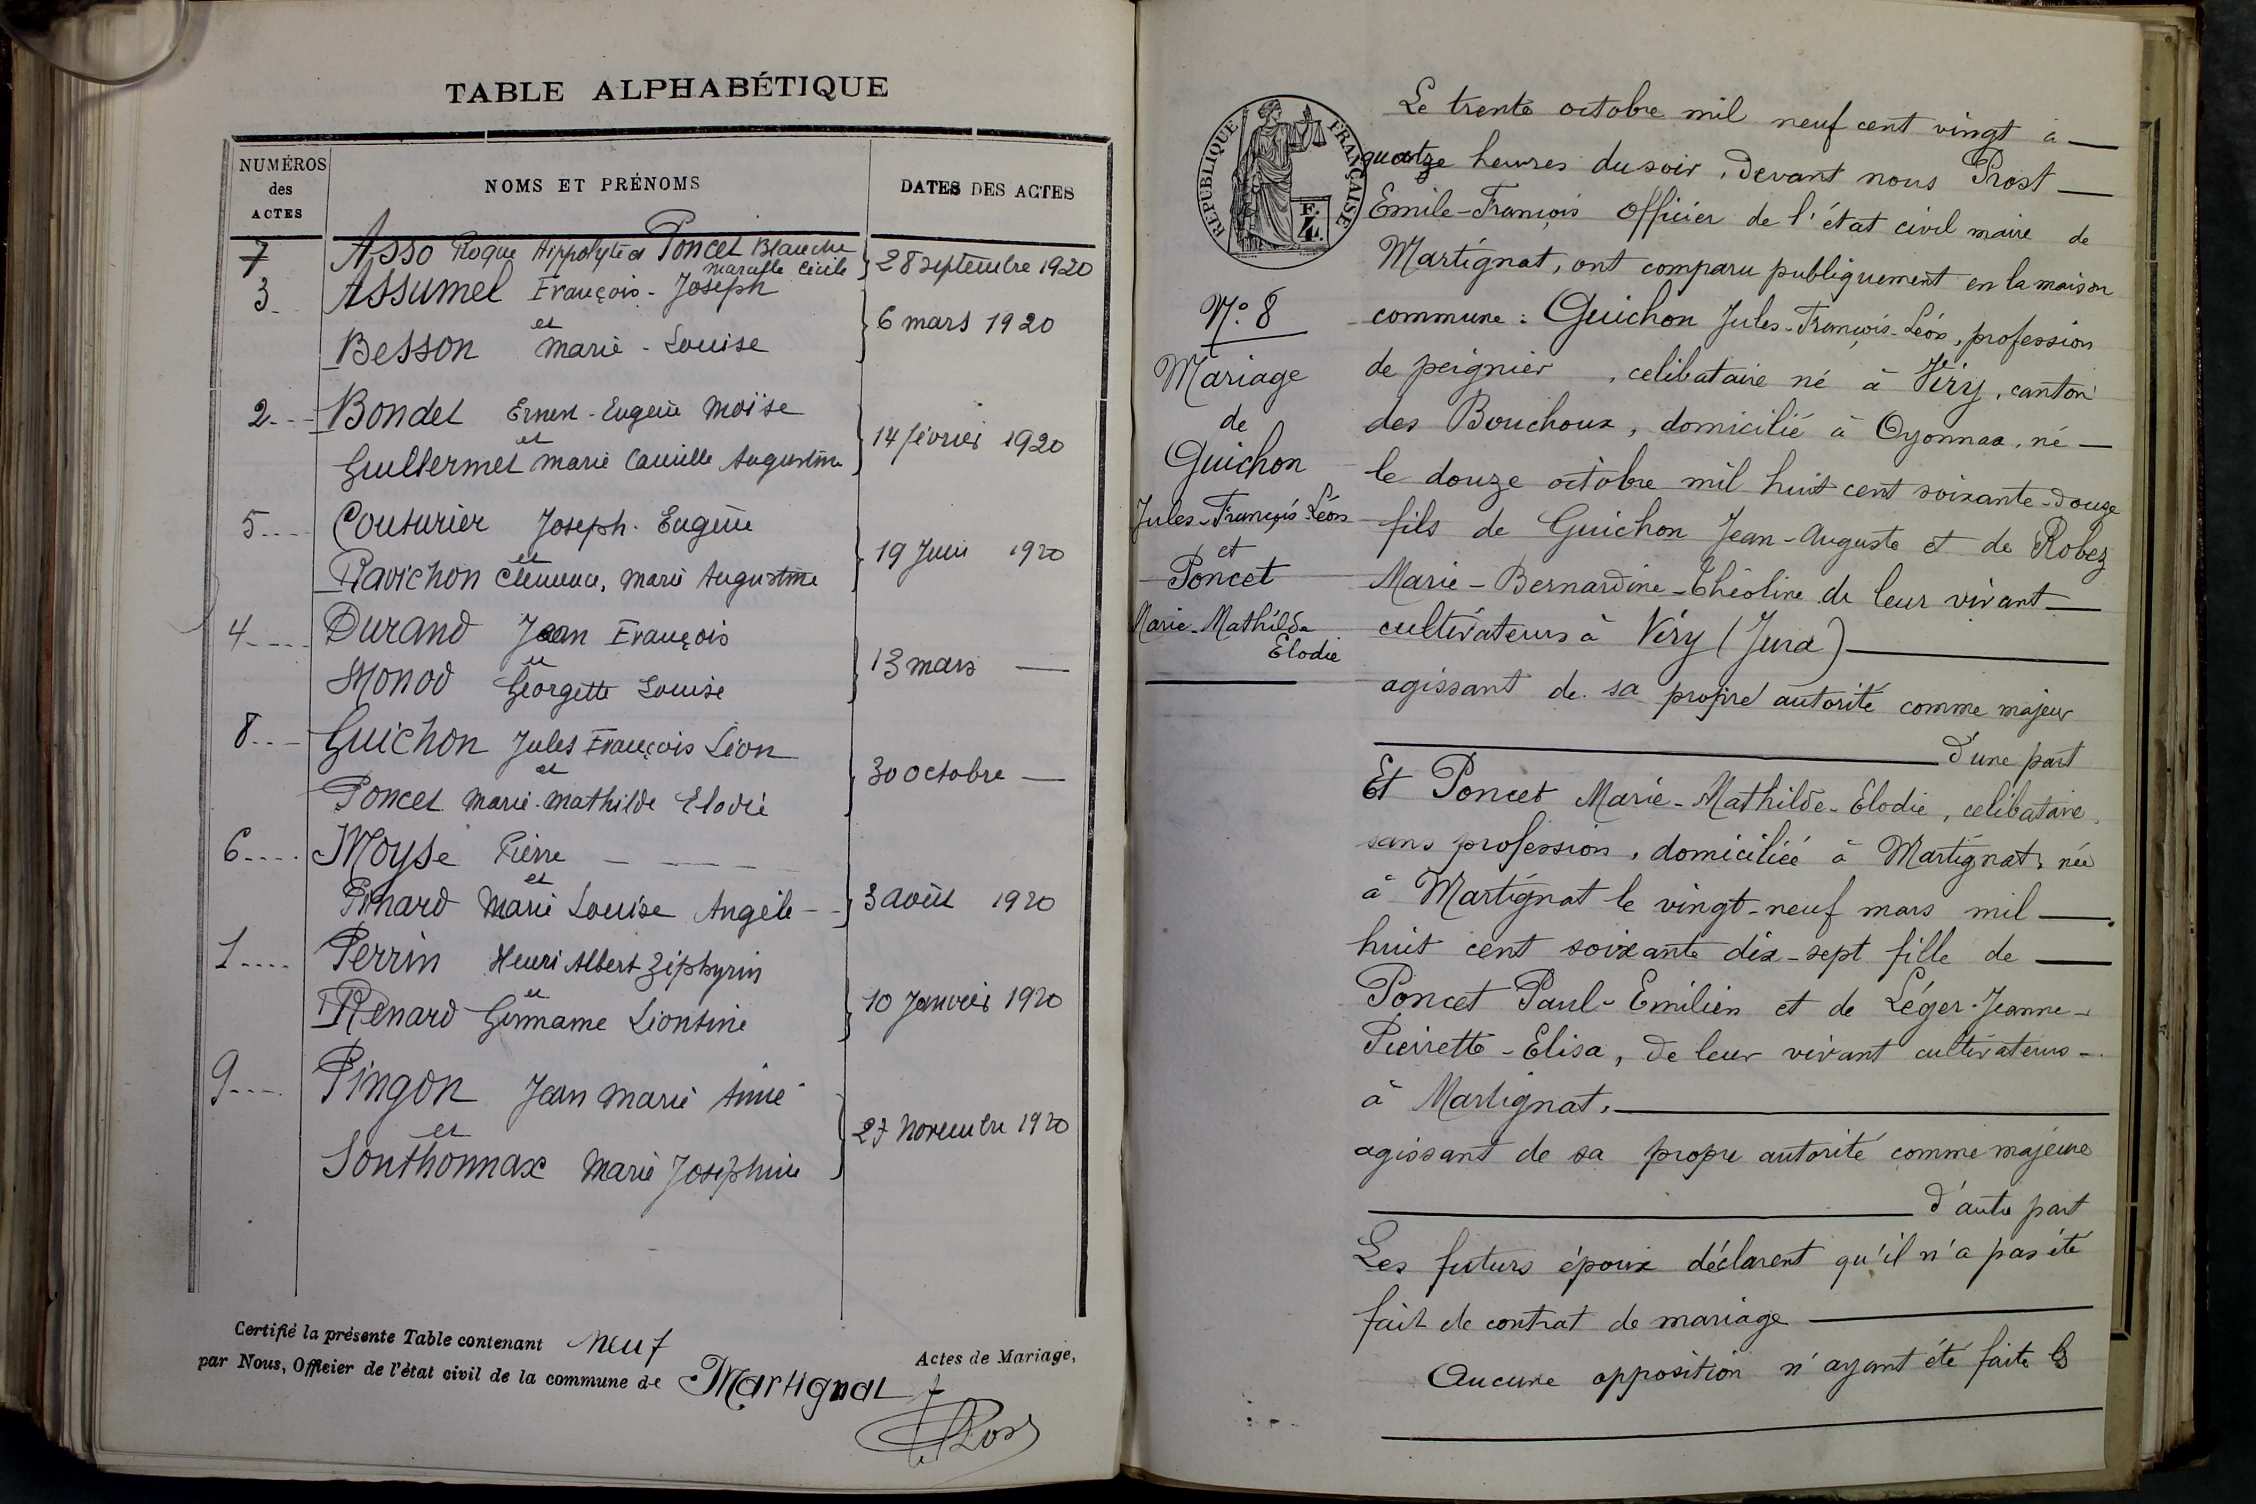 TABLE ALPHABÉTIQUE
NUMÉROS des ACTES
NOMS ET PRÉNOMS
DATES DES ACTES
7 Asso Roque Hippolyte et Poncet Blanche
marcelle Cécile } 28 septembre 1920
3 Assumel François-Joseph
et
Besson Marie-Louise } 6 mars 1920
2 Bondet Ernest-Eugène Moïse
et
Guillermet Marie Camille Augustine } 14 février 1920
5 Couturier Joseph-Eugène
et
Ravichon Clémence, Marie Augustine } 19 Juin 1920
4 Durand Jean François
et
Monod Georgette Louise } 13 mars —
8 Guichon Jules François Léon
et
Poncet Marie-Mathilde Elodie } 30 octobre —
6 Moyse Pierre
et
Pinard Marie Louise Angèle } 3 août 1920
1 Perrin Henri Albert Zéphyrin
et
Renard Germaine Léontine } 10 Janvier 1920
9 Pingon Jean Marie Aimé
et
Sonthonnax Marie Joséphine } 27 Novembre 1920
Certifié la présente Table contenant neuf Actes de Mariage,
par Nous, Officier de l'état civil de la commune de Martignat
Prost
RÉPUBLIQUE FRANÇAISE
F. 4
N° 8
Mariage
de
Guichon
Jules-François-Léon
et
Poncet
Marie-Mathilde
Elodie
Le trente octobre mil neuf cent vingt à —
quatre heures du soir, devant nous Prost —
Emile-François Officier de l'état civil maire de
Martignat, ont comparu publiquement en la maison
commune : Guichon Jules-François-Léon, profession
de peignier, celibataire né à Viry, canton
des Bouchoux, domicilié à Oyonnax, né —
le douze octobre mil huit cent soixante-douze
fils de Guichon Jean-Auguste et de Robez
Marie-Bernardine-Théoline de leur vivant —
cultivateurs à Viry (Jura) —
agissant de sa propre autorité comme majeur
— d'une part
Et Poncet Marie-Mathilde-Elodie, celibataire,
sans profession, domiciliée à Martignat, née
à Martignat le vingt-neuf mars mil —
huit cent soixante dix-sept fille de —
Poncet Paul-Emilien et de Léger-Jeanne-
Pierrette-Elisa, de leur vivant cultivateurs -
à Martignat, —
agissant de sa propre autorité comme majeure
— d'autre part
Les futurs époux déclarent qu'il n'a pas été
fait de contrat de mariage —
Aucune opposition n'ayant été faite